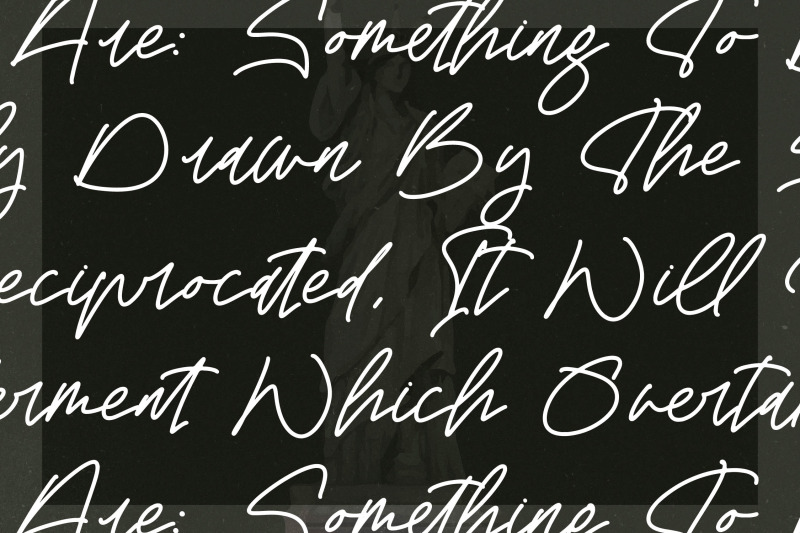 Are: Something To
y Drawn By The
eciprocated, It Will
erment Which Overta
Are: Something To